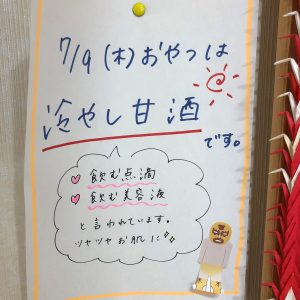 7/9(木)おやつは
冷やし甘酒
です。
♡飲む点滴
♡飲む美容液
と言われています。
ツヤツヤお肌に